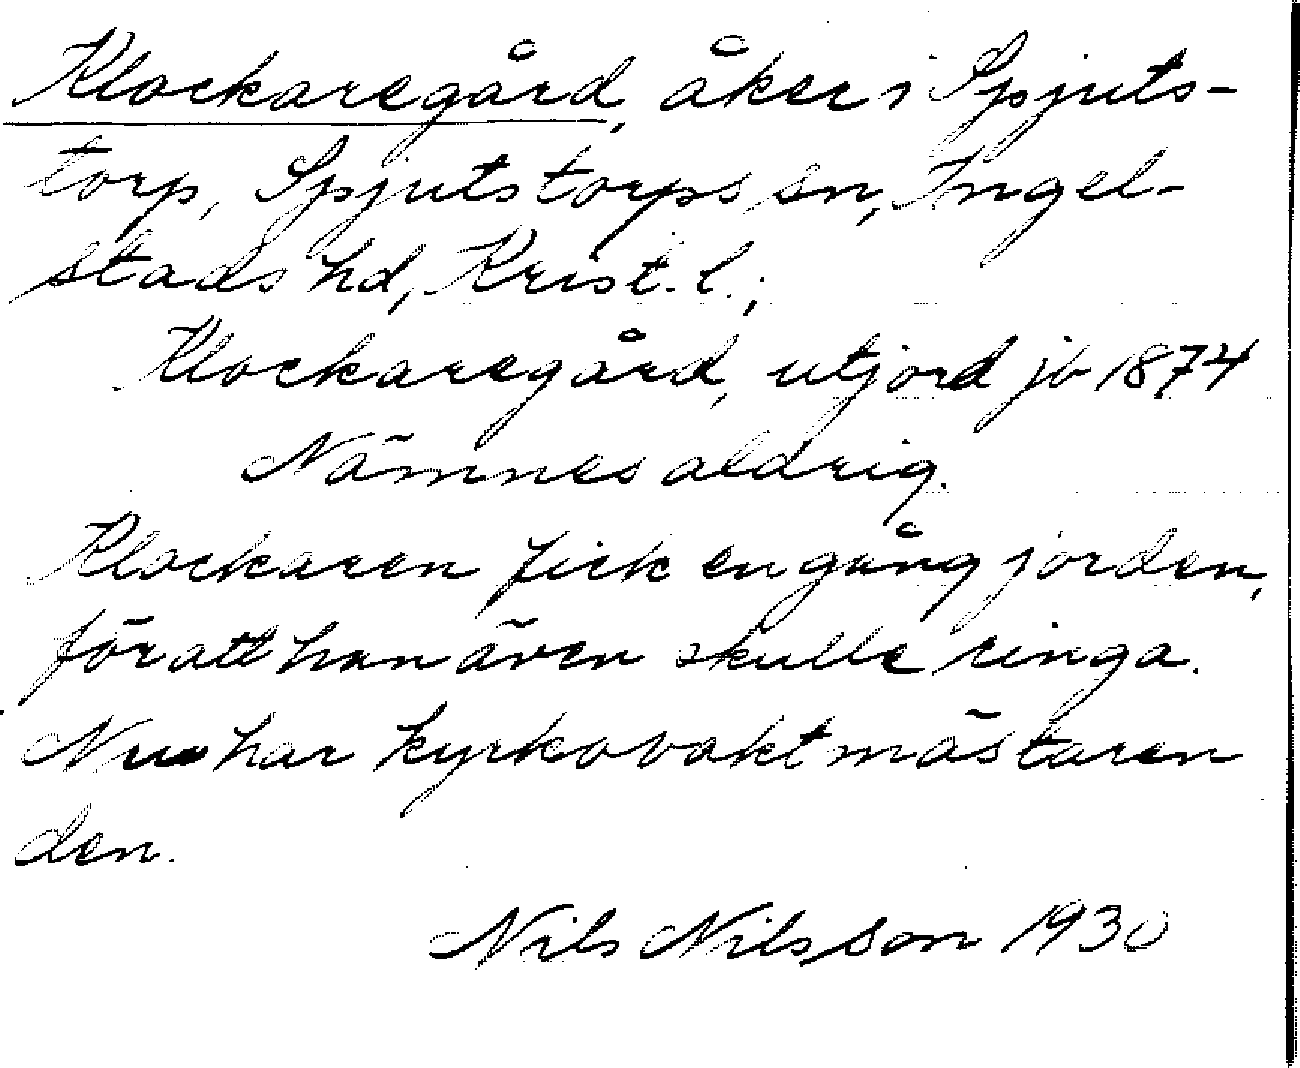 Klockaregård, åker i Spjuts-
torp, Spjutstorps sn, Ingel-
stads hd, Krist. l.;
Klockaregård, utjord jb 1874
Nämnes aldrig.
Klockaren fick en gång jorden,
för att han även skulle ringa.
Nu har kyrkovaktmästaren
den.
Nils Nilsson 1930